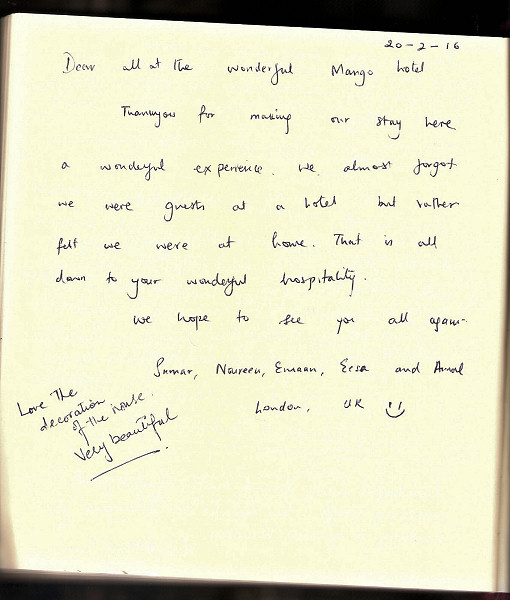 20-2-16
Dear all at the wonderful Mango hotel
Thankyou for making our stay here
a wonderful experience. We almost forgot
we were guests at a hotel but rather
felt we were at home. That is all
down to your wonderful hospitality.
We hope to see you all again.
Sumar, Noureen, Emaan, Eesa and Amal
London, UK
Love the
decoration
of the house.
Very beautiful